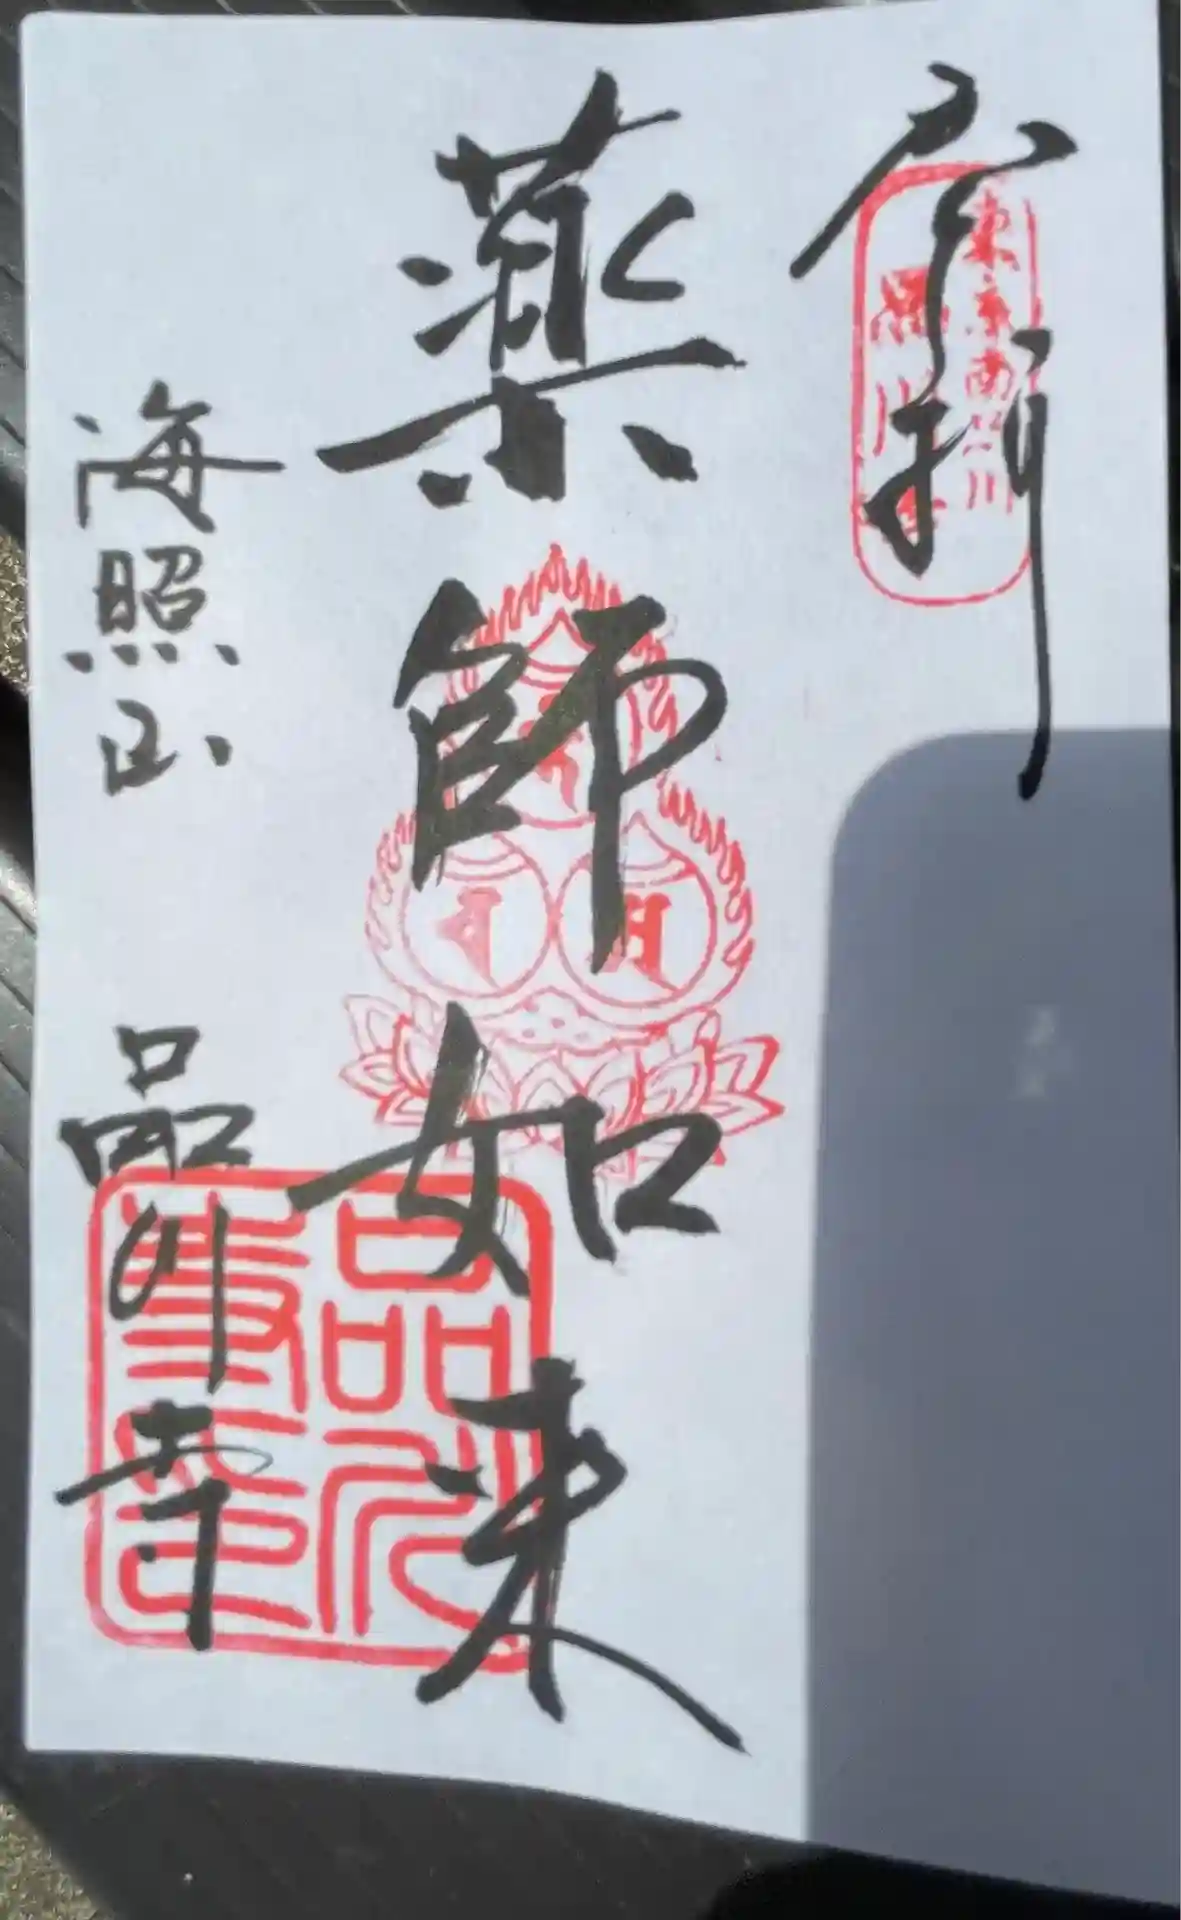 奉拝
東京南品川
品川寺
薬師如来
海照山
品川寺